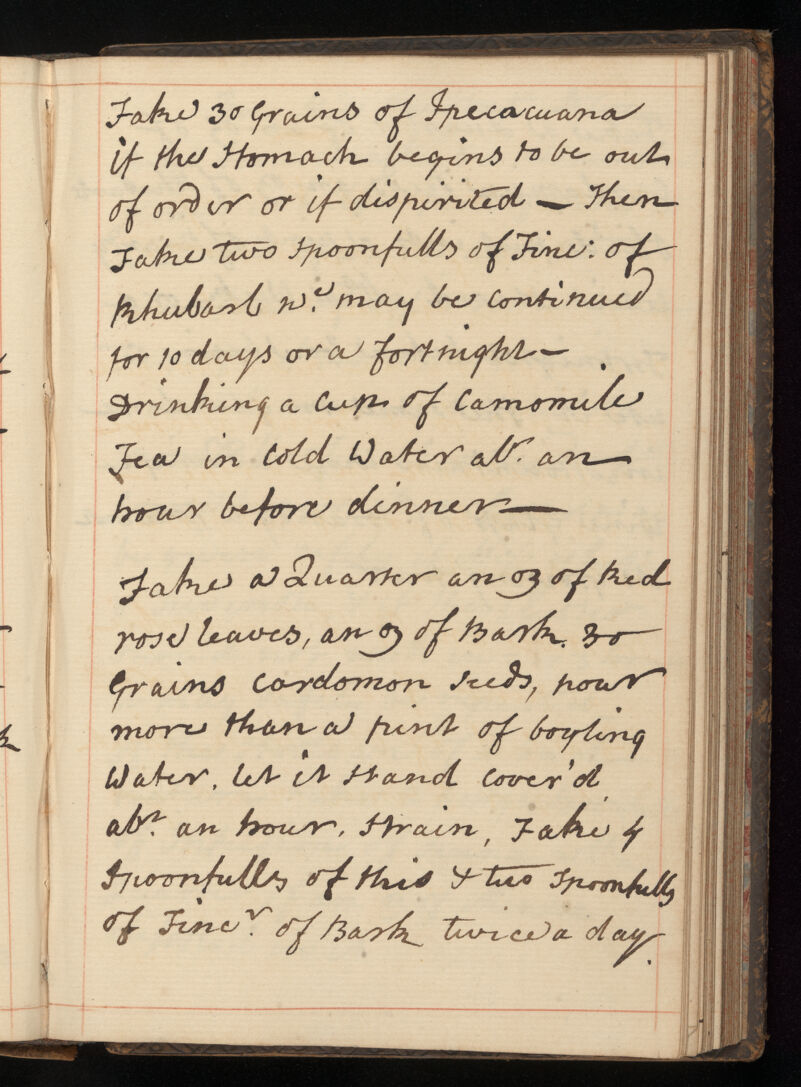 Take 30 Grains of Ipecacuana
if the Stomach begins to be out
of order or if dispirited — Then
Take two Spoonfulls of Tinc: of
Rhubarb wch. may be continued
for 10 days or a fortnight —
Drinking a cup of Camomile
Tea in cold Water abt. an
hour before dinner —
Take a Quarter an oz of Red
rose leaves, an oz of Bark. 30
Grains cardomon seeds, pour
more than a pint of boyling
Water. let it stand cover'd
abt. an hour. Strain, Take 4
Spoonfulls of this & two Spoonfulls
of Tincr. of Bark twice a day.